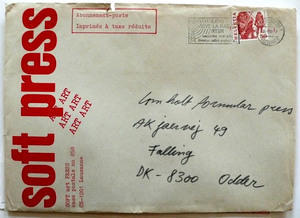 soft press
Abonnement-poste
Imprimés à taxe réduite
HELVETIA
ART ART
ART ART
ART ART
SOFT art PRESS
case postale no 858
CH-1001 Lausanne
Lomholt formular press
AKjaervej 49
Falling
DK-8300 Odder